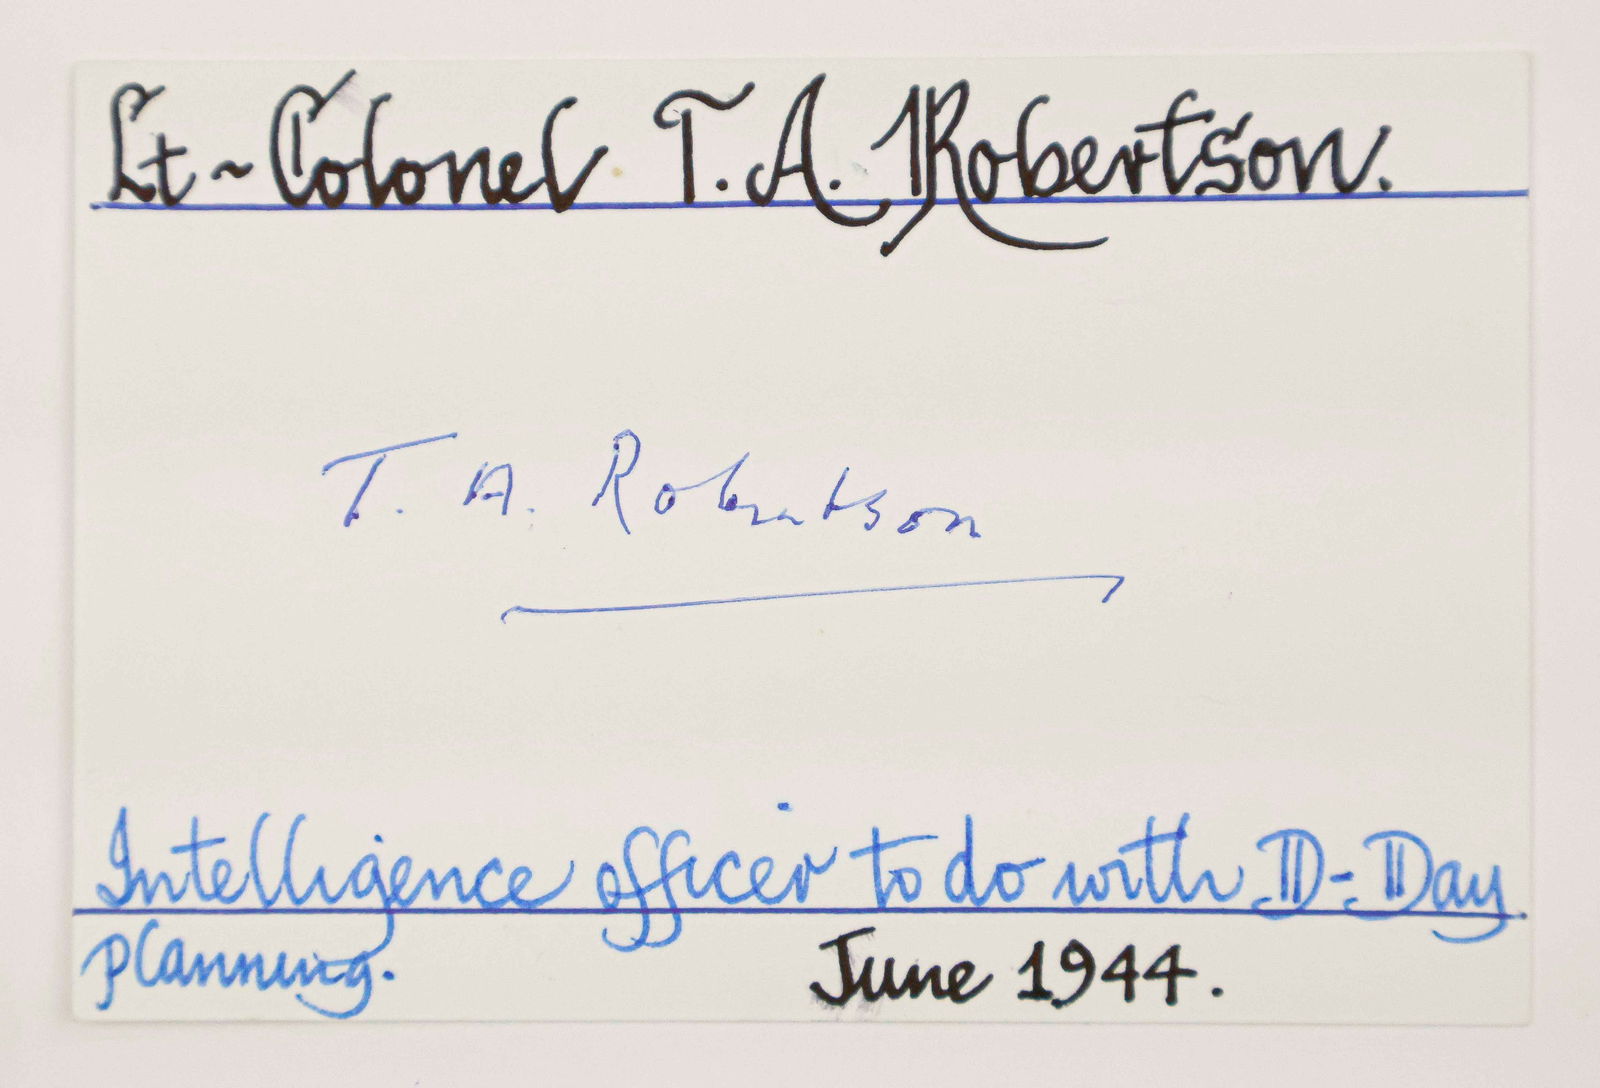 Lt~Colonel T. A. Robertson.
T. A. Robertson
Intelligence officer to do with D-Day
planning.
June 1944.